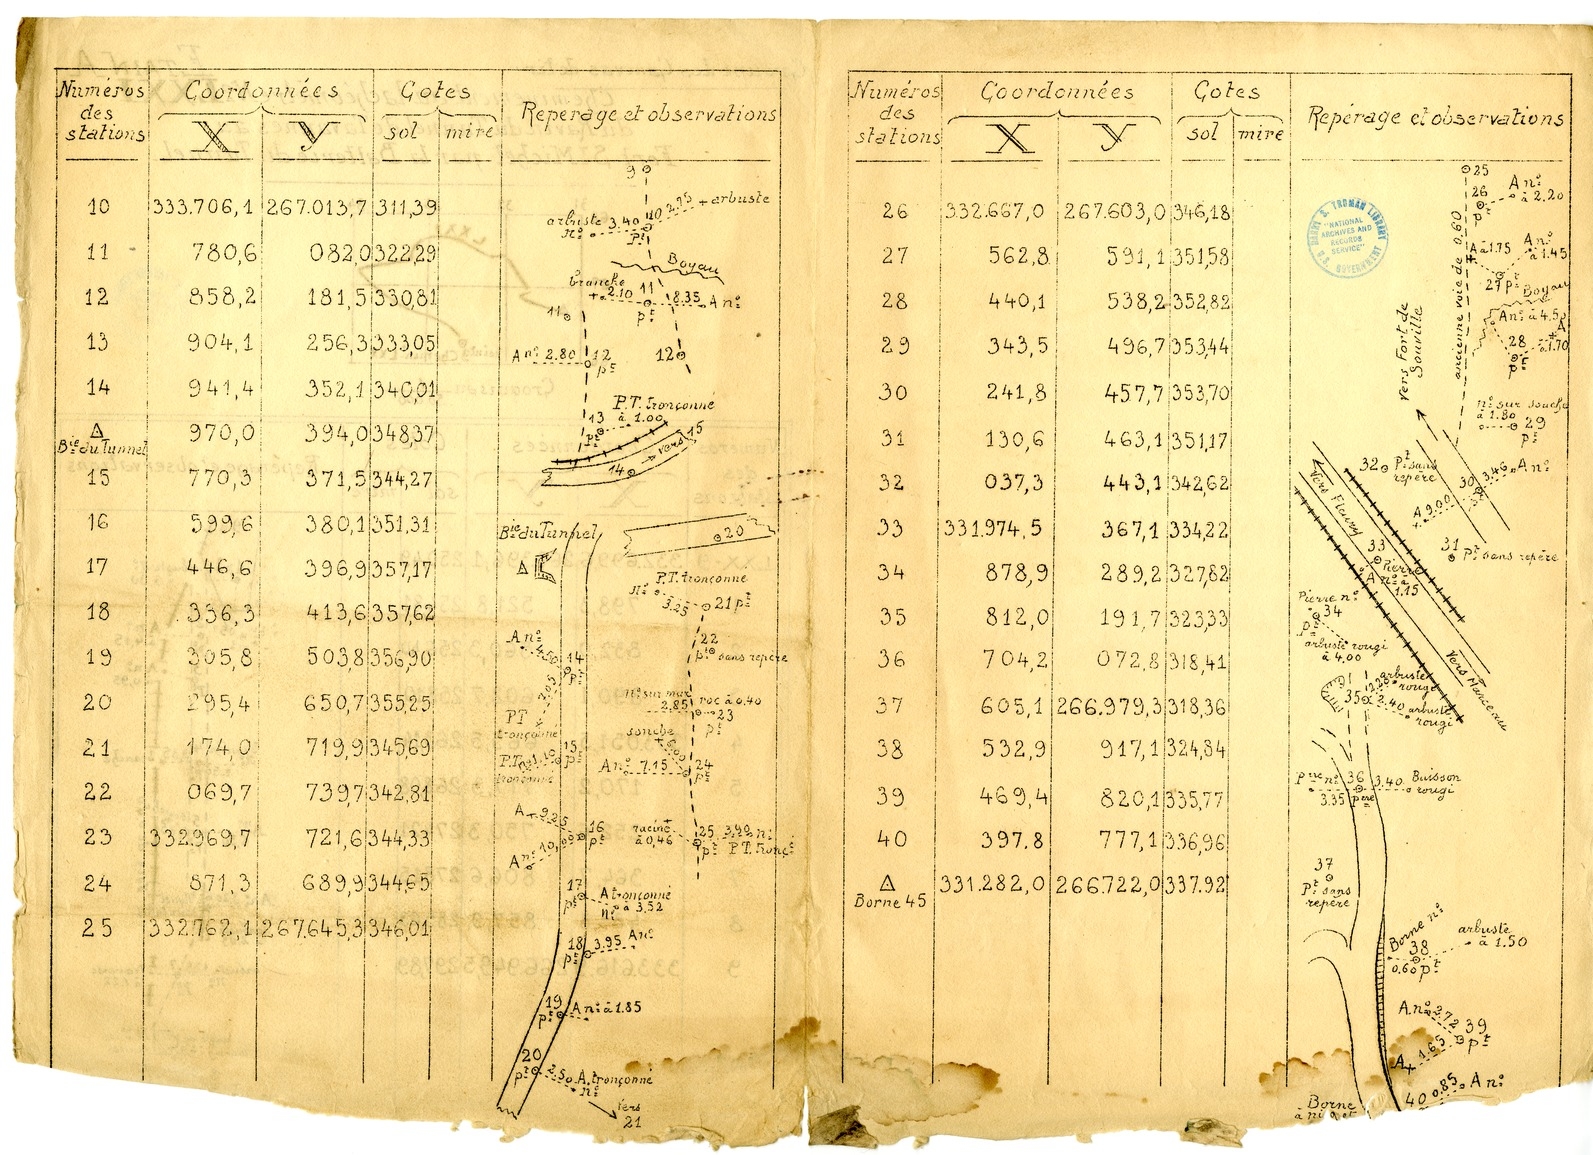 Numéros
des
stations
Coordonnées
X Y
Cotes
sol mire
Repérage et observations
10 333.706,1 267.013,7 311,39
11 780,6 082,0 322,29
12 858,2 181,5 330,81
13 904,1 256,3 333,05
14 941,4 352,1 340,01
Δ
Bie du Tunnel 970,0 394,0 348,37
15 770,3 371,5 344,27
16 599,6 380,1 351,31
17 446,6 396,9 357,17
18 336,3 413,6 357,62
19 305,8 503,8 356,90
20 295,4 650,7 355,25
21 174,0 719,9 345,69
22 069,7 739,7 342,81
23 332.969,7 721,6 344,33
24 871,3 689,9 344,65
25 332.762,1 267.645,3 346,01
9
10 2.95 + arbuste
arbuste 3.40
nº pt
Boyau
branche
+ 2.10 11 8.35 A nº
pt
11
A nº 2.80 12
pt
12
P.T. tronçonné
13 à 1.00
pt
15
vers
14
Bie du Tunnel
20
Δ
P.T. tronçonné
nº 3.25 21 pt
22
pt sans repère
A nº
4.50 14
pt
2.05
PT
tronçonné
nº sur mur
2,85
roc à 0.40
23
pt
souche
15
pt
P.T. 1.10
tronçonné
A nº 7.15 24
pt
A + 9,25
16
pt
A nº 10,09
racine
à 0,46
25 3,90 nº
pt P.T. Tronç
17
pt
A tronçonné
nº à 3,52
18 3.95 A nº
pt
19 A nº à 1.85
pt
20
pt 2.50 A. tronçonné
nº
Vers
21
Numéros
des
stations
Coordonnées
X Y
Cotes
sol mire
Repérage et observations
26 332.667,0 267.603,0 346,18
27 562,8 591,1 351,58
28 440,1 538,2 352,82
29 343,5 496,7 353,44
30 241,8 457,7 353,70
31 130,6 463,1 351,17
32 037,3 443,1 342,62
33 331.974,5 367,1 334,22
34 878,9 289,2 327,82
35 812,0 191,7 323,33
36 704,2 072,8 318,41
37 605,1 266.979,3 318,36
38 532,9 917,1 324,84
39 469,4 820,1 335,77
40 397.8 777,1 336,96
Δ
Borne 45 331.282,0 266.722,0 337.92
HARRY S. TRUMAN LIBRARY
"NATIONAL
ARCHIVES AND
RECORDS
SERVICE"
U.S. GOVERNMENT
25
26 A nº
pt à 2,20
A à 1.75 A nº
à 1.45
27 pt
Boyau
A nº à 4.5
A
28 à 1.70
pt
ancienne voie de 0.60
vers Fort de
Souville
nº sur souche
à 1.80 29
pt
32 Pt sans
repère
30 3,46 A nº
A 9.00
Vers Fleury
33
Pierre
A nº à
1.15
31
Pt sans repère
Pierre nº
34
pt
arbuste rougi
à 4.00
Vers Marceau
arbuste
rougi
35 2.40 arbuste
rougi
Pre nº 36 3.40 Buisson
3.35 pt rougi
37
Pt sans
repère
Borne nº
38
0.60 pt
arbuste
à 1.50
A.nº 2.72 39
pt
A 1.65
40 0.85 A nº
Borne